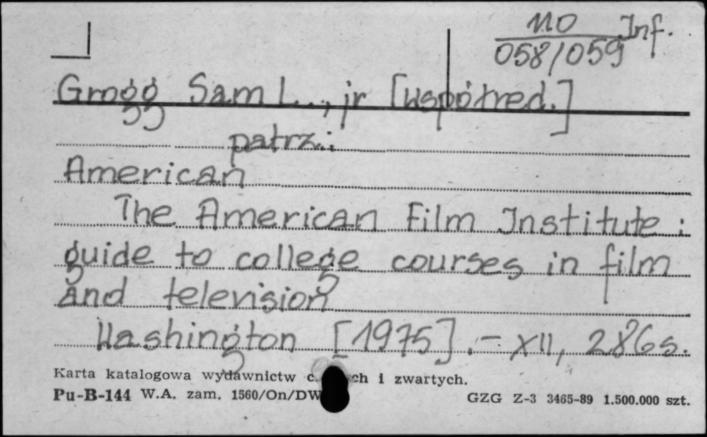 110 Inf.
058/059
Grogg Sam L., jr [współred.]
patrz:
American
The American Film Institute :
guide to college courses in film
and television
Washington [1975]. – XII, 286 s.
Karta katalogowa wydawnictw ch i zwartych.
Pu-B-144 W.A. zam. 1560/On/DW
GZG Z-3 3465-89 1.500.000 szt.